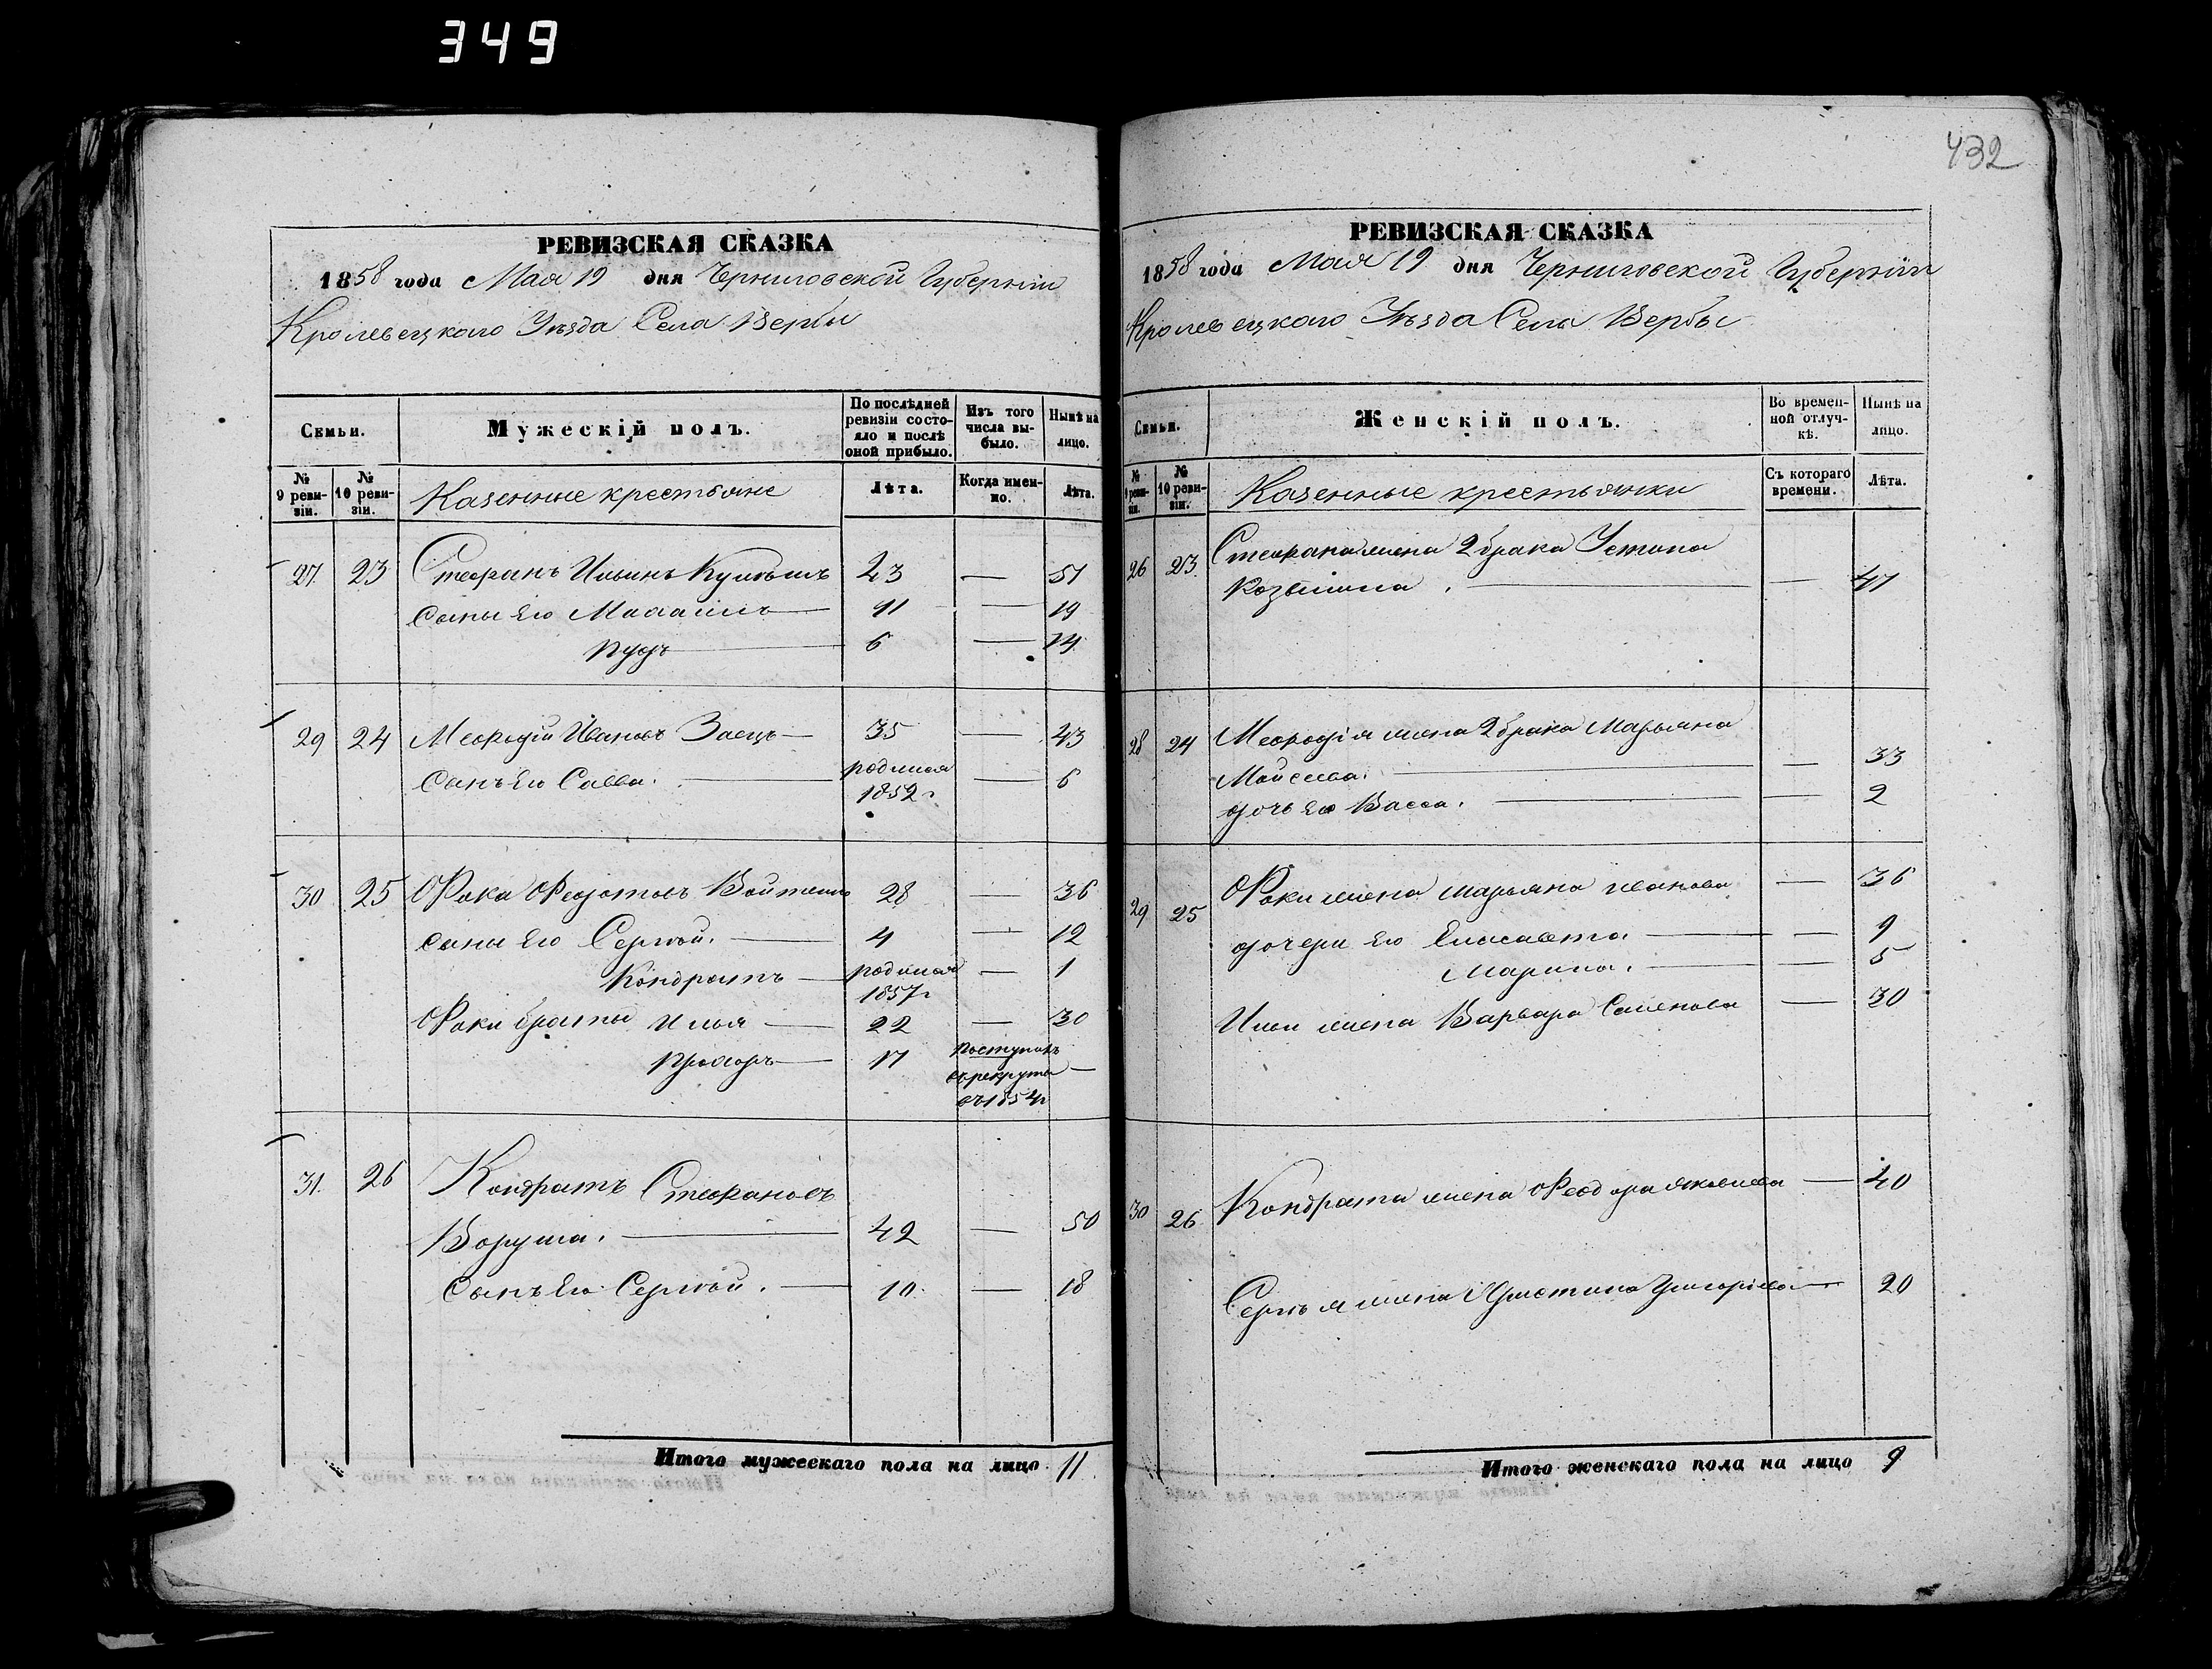 349
432
РЕВИЗСКАЯ СКАЗКА
1858 года Мая 19 дня Черниговской Губерніи
Кролевецкаго Уѣзда Села Вербы
Семьи. Мужескій полъ. По послѣдней ревизіи состояло и послѣ оной прибыло. Изъ того числа выбыло. Нынѣ на лицо.
№ 9 ревизіи. № 10 ревизіи. Казенные крестьяне Лѣта. Когда именно. Лѣта.
27 23 Стефанъ Ильинъ 43 — 51
Сыны Его 11 — 19
6 — 14
29 24 Мефодій Ивановъ Заецъ — 35 — 43
Сынъ Его Савва. — родился 1852 г — 6
30 25 Фока Федотовъ 28 — 36
сыны Его Сергѣй. — 4 — 12
Кондратъ — родился 1857 г — 1
Фоки браты Илья — 22 — 30
Прохоръ — 17 Поступилъ въ рекруты въ 1854 г —
31. 26 Кондратъ Стефановъ
42 — 50
Сынъ Его Сергѣй. — 10. — 18
Итого мужескаго пола на лицо 11.
РЕВИЗСКАЯ СКАЗКА
1858 года Мая 19 дня Черниговской Губерніи
Кролевецкаго Уѣзда Села Вербы
Семьи. Женскій полъ. Во временной отлучкѣ. Нынѣ на лицо.
№ 9 ревизіи. № 10 ревизіи. Казенные крестьянки Съ котораго времени. Лѣта.
26 23. Стефана жена 2 брака Устина
Козьмина. — — 47
28 24 Мефодія жена 2 брака Марьяна
Мойсеева. — — 33
дочь Его Васса. — — 2
29 25 Фоки жена Марьяна Иванова — 36
дочери Его Елисавета. — — 9
Марина. — — 5
Ильи жена Варвара Семенова — 30
30 26 Кондрата жена Феодора Яковлева — 40
Сергѣя жена Христина Григорьева — 20
Итого женскаго пола на лицо 9